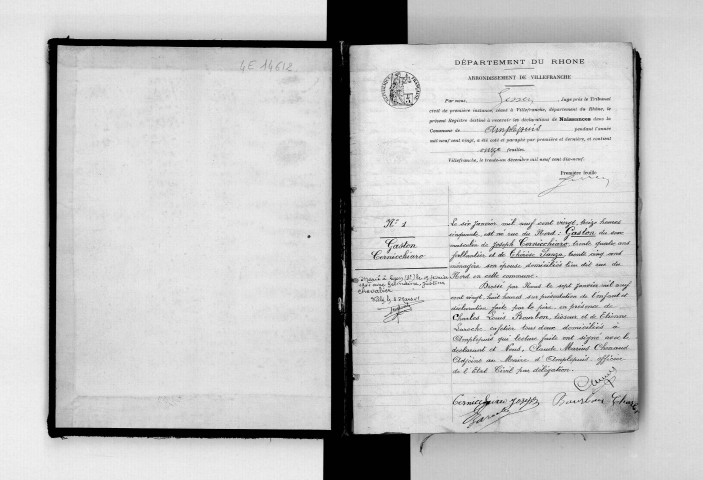 4E 14612
DÉPARTEMENT DU RHONE
ARRONDISSEMENT DE VILLEFRANCHE
Par nous, Juge près le Tribunal
civil de première instance, séant à Villefranche, département du Rhône, le
présent Registre destiné à recevoir les déclarations de Naissances dans la
Commune de Amplepuis pendant l'année
mil neuf cent vingt, a été coté et paraphé par première et dernière, et contient
onze feuilles.
Villefranche, le trente-un décembre mil neuf cent dix-neuf.
Première feuille
N° 1
Gaston
Cernicchiaro
Marié à Lyon le février
avec
Chevalier
Le six janvier mil neuf cent vingt, treize heures
cinquante, est né rue du Nord : Gaston du sexe
masculin de Joseph Cernicchiaro, trente quatre ans
et de Thérèse trente cinq ans
ménagère son épouse domiciliés dite rue du
Nord en cette commune.
Dressé par Nous le sept janvier mil neuf
cent vingt, huit heures sur présentation de l'enfant et
déclaration faite par le père, en présence de
Charles Louis Bourbon, tisseur et de Etienne
Laroche cafetier tous deux domiciliés à
Amplepuis qui lecture faite ont signé avec le
déclarant et Nous, Claude Marius
Adjoint au Maire d'Amplepuis, officier
de l'Etat Civil par délégation.
Cernicchiaro Joseph Bourbon Charles
Laroche